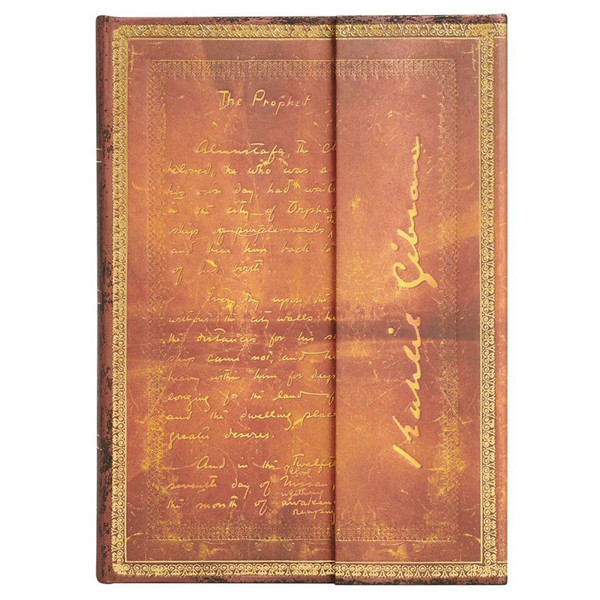 The Prophet
Almustafa, the Ch
beloved, he who was a
his own day, had wait
in the city of Orphal
ship
and bear him back to
of his birth.
Every day upon the
without the city walls he
the distances for his s
ship came not, and he
heavy within him for days
longing for the land of
and the dwelling place
greater desires.
And in the Twelfth
seventh day of Nissan,
the month of awaken
reaping
Kahlil Gibran